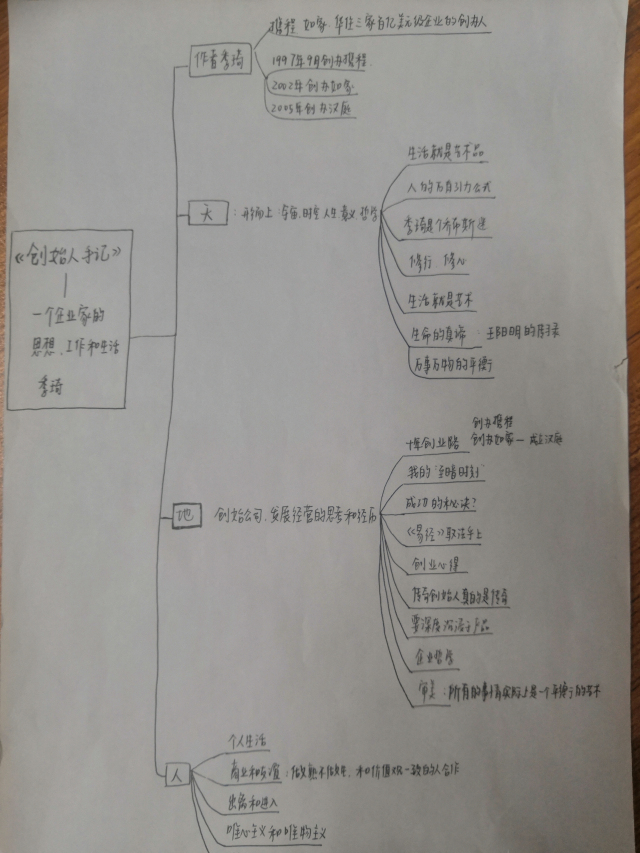 作者季琦
携程 如家、华住三家百亿美元级企业的创办人
1997年9月创办携程
2002年创办如家
2005年创办汉庭
天
：形而上：宇宙、时空、人生意义、哲学
生活就是艺术品
人的万有引力公式
季琦是个布斯迷
修行、修心
生活就是艺术
生命的真谛：王阳明的传习录
万事万物的平衡
《创始人手记》
一个企业家的
思想、工作和生活
季琦
地
创始公司、发展经营的思考和经历
十年创业路
创办携程
创办如家—成立汉庭
我的“至暗时刻”
成功的秘诀？
《易经》取法乎上
创业心得
传奇创始人真的是传奇
要深度沉浸于产品
企业哲学
审美：所有的事情实际上是一个平衡的艺术
人
个人生活
商业和投资：做熟不做生、和价值观一致的人合作
出离和进入
唯心主义和唯物主义